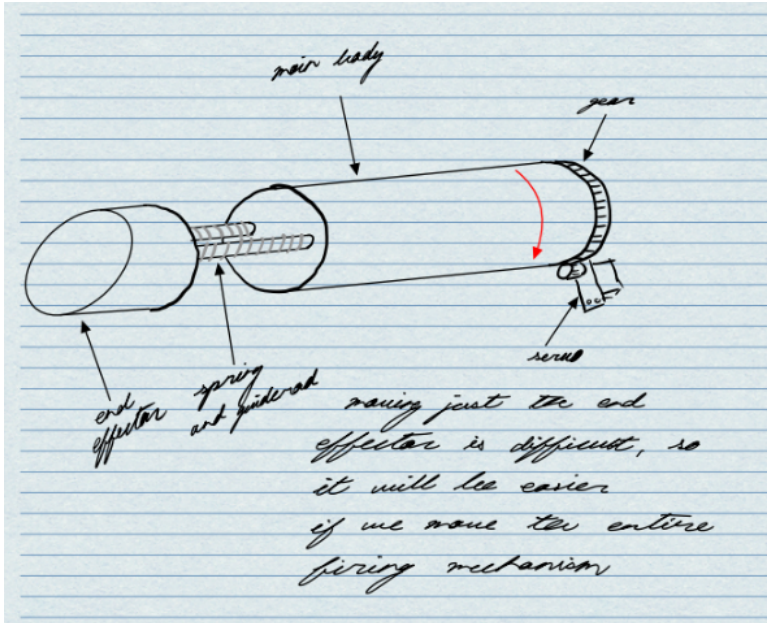 main body
gear
servo
end
effector
spring
and guiderod
moving just the end
effector is difficult, so
it will be easier
if we move the entire
firing mechanism